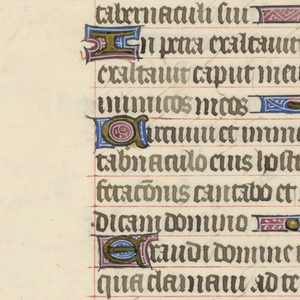 tabernaculi sui
In petra exaltauit
exaltauit caput meu
inimicos meos
Circuiui et immo
tabnaculo eius hosti
feracōnis cantabo et
dicam domino
Exaudi domine
qua clamaui ad te